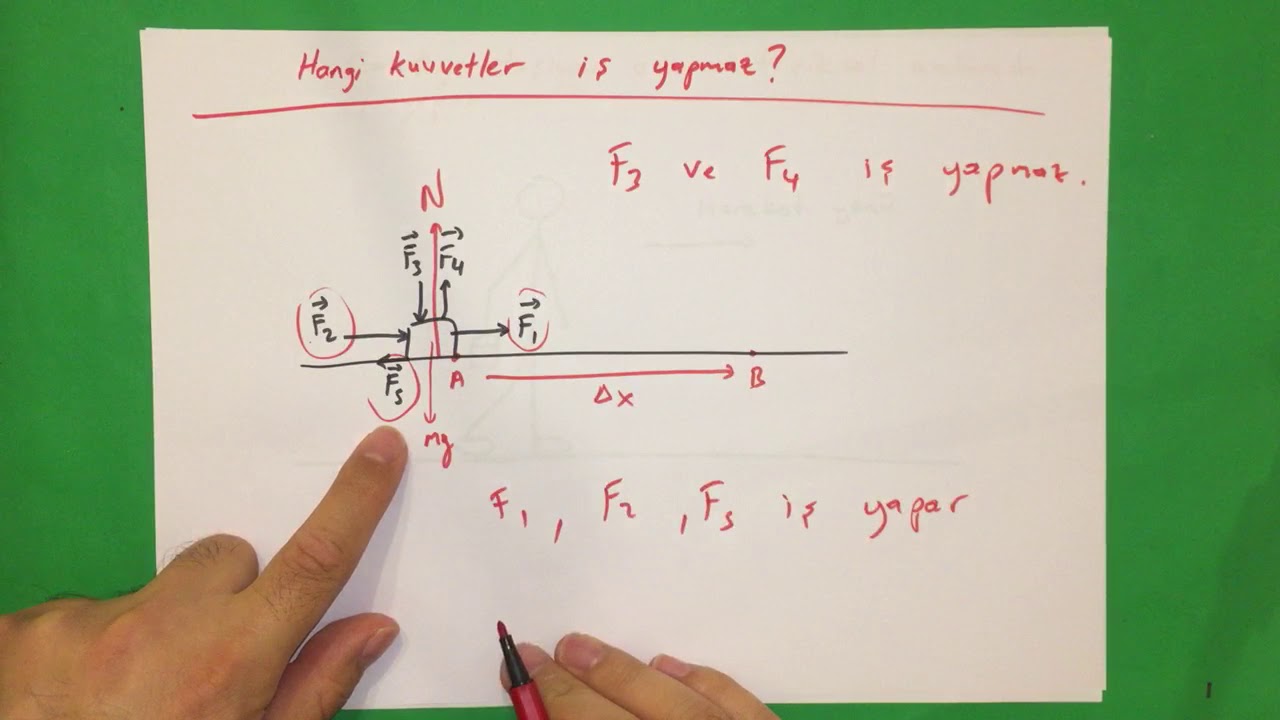 Hangi kuvvetler iş yapmaz?
F3 ve F4 iş yapmaz.
N
F3 F4
F2 F1
Fs A B
Δx
mg
F1, F2, Fs iş yapar